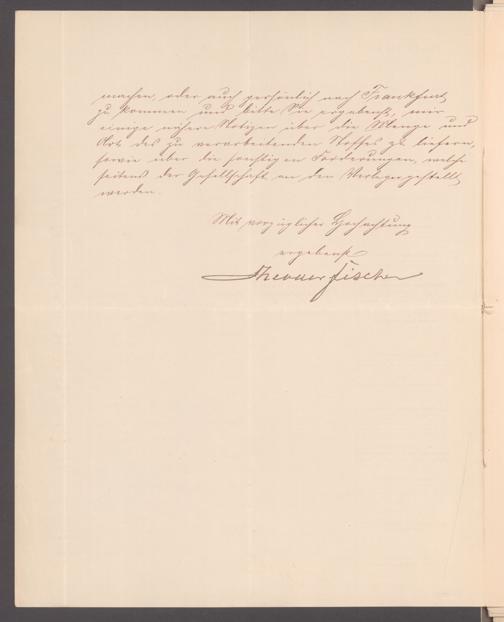 machen, oder auch persönlich nach Frankfurt
zu kommen und bitte Sie ergebenst, mir
einige nähere Notizen über die Menge und
Art des zu verarbeitenden Stoffes zu liefern,
sowie über die sonstigen Forderungen, welche
seitens der Gesellschaft an den Verleger gestellt
werden.
Mit vorzüglicher Hochachtung
ergebenst
Theodor Fischer